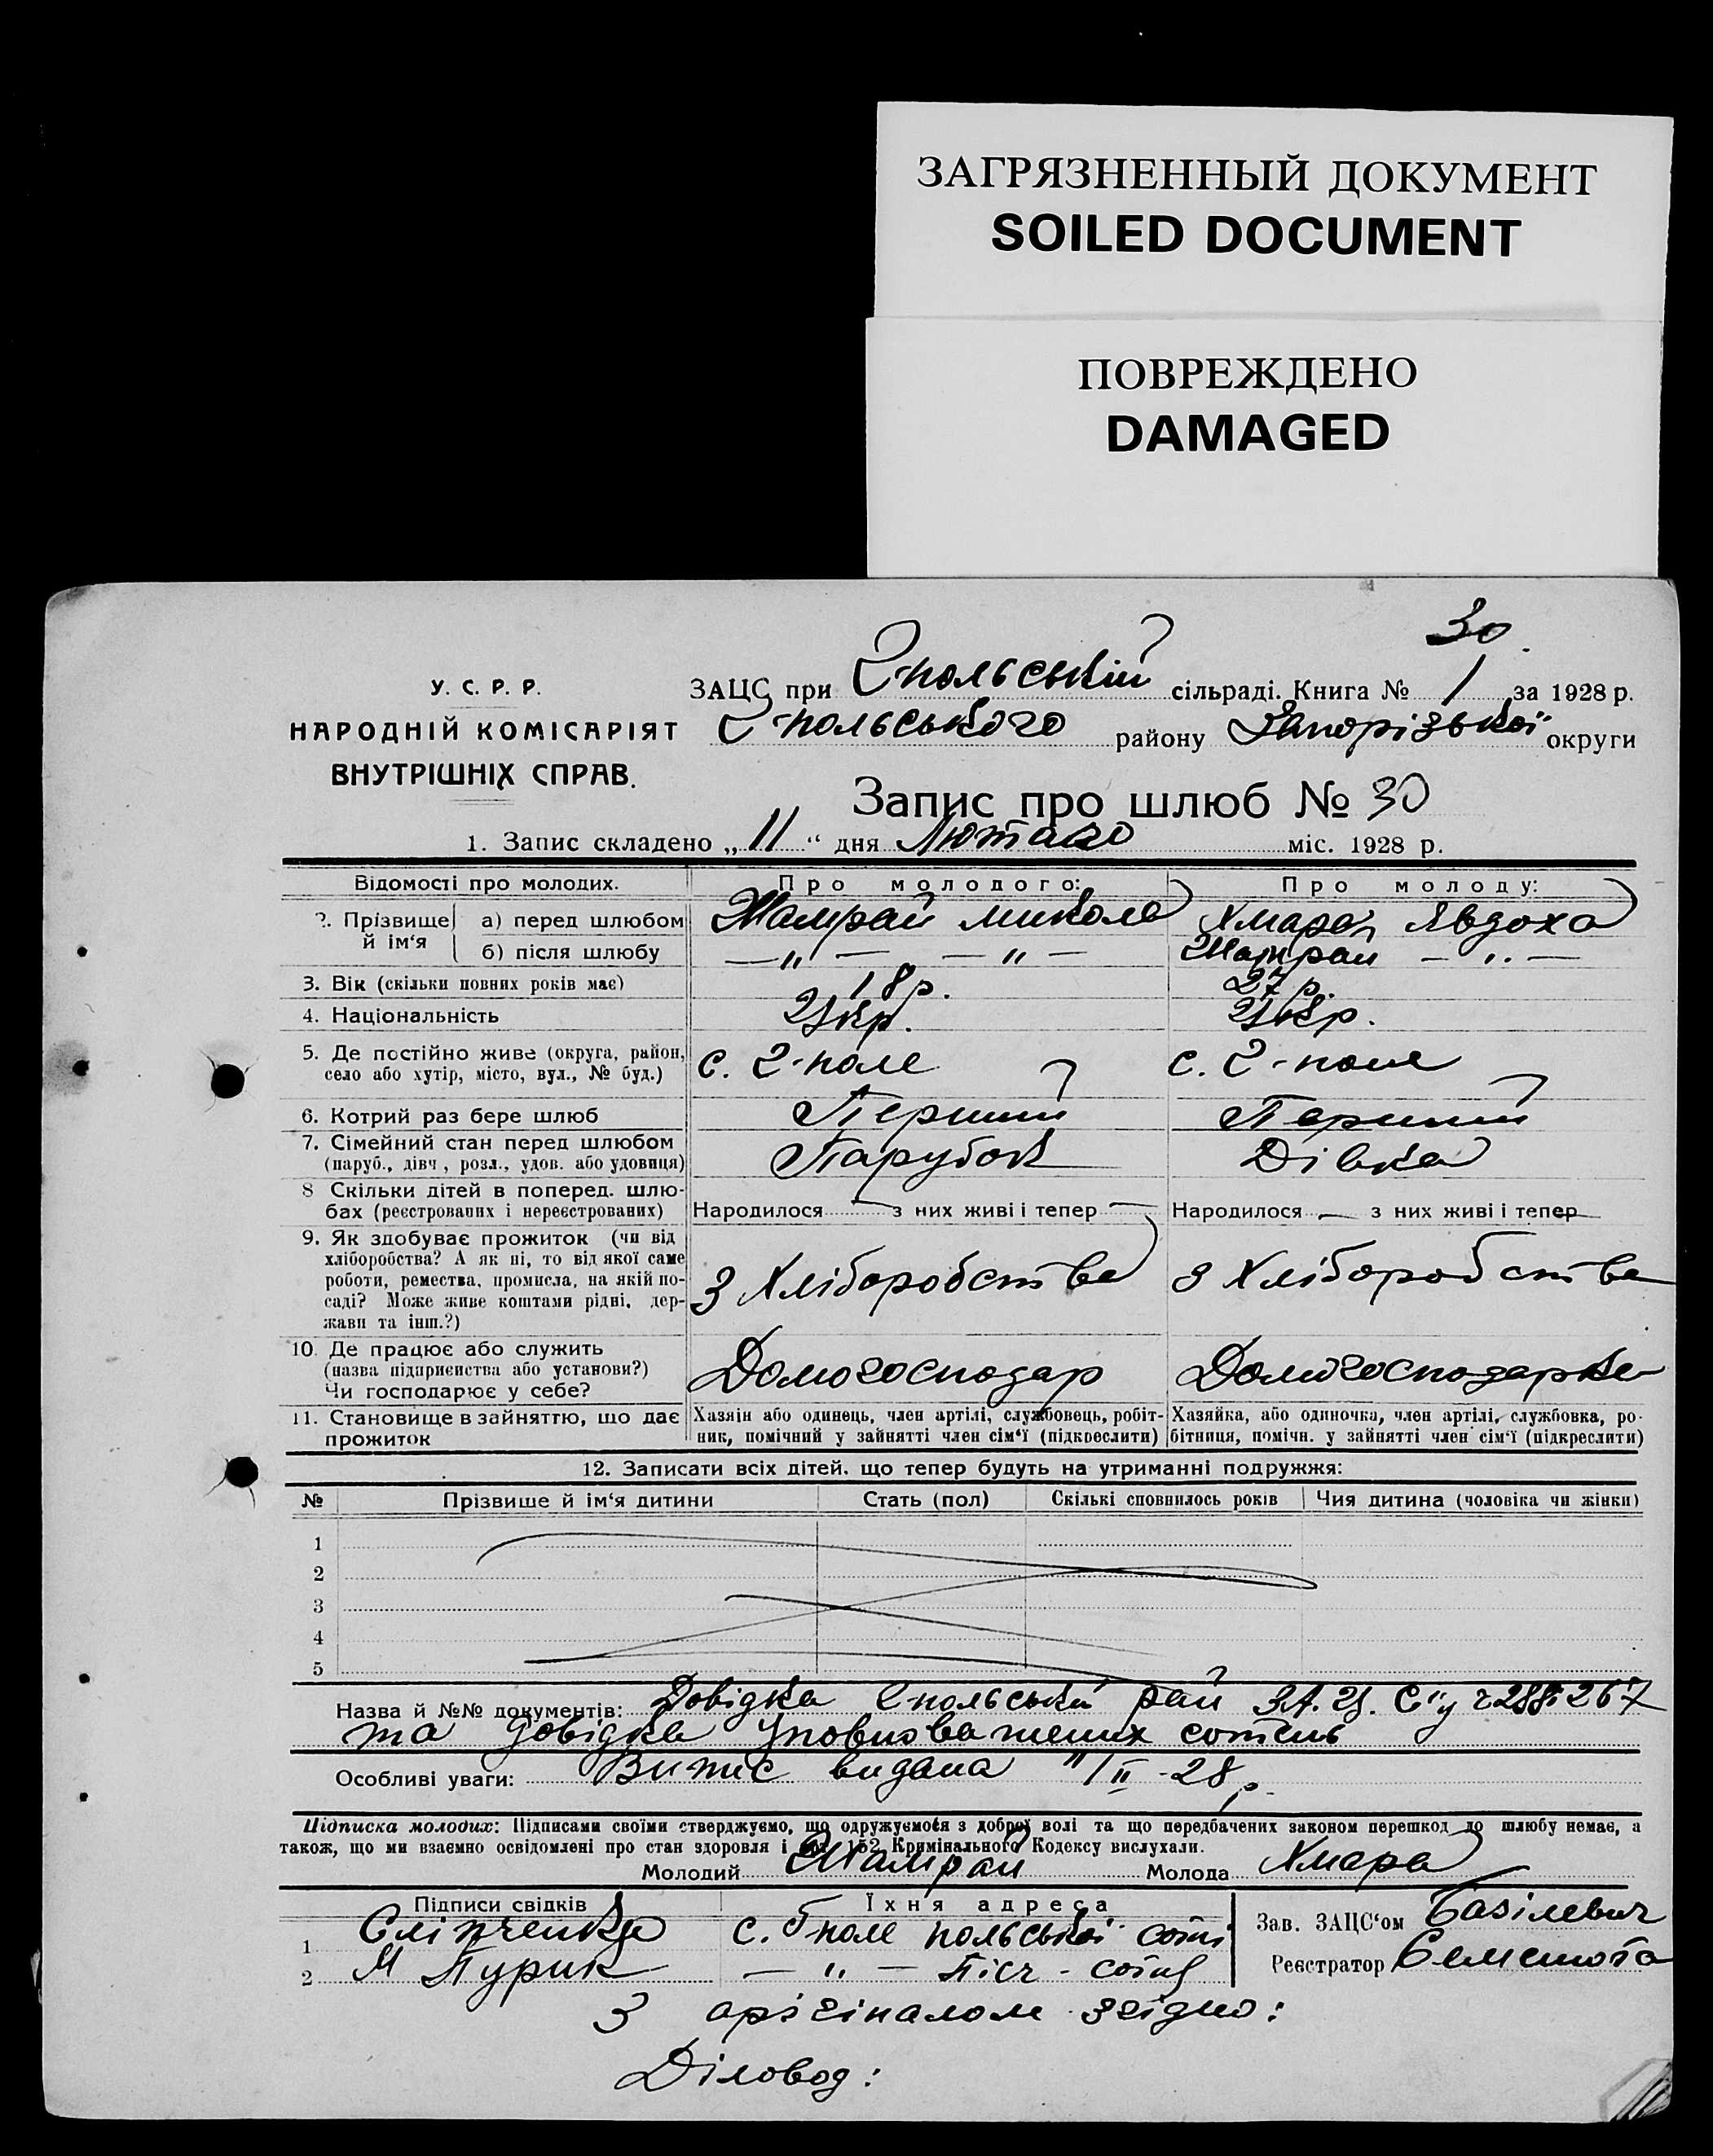 ЗАГРЯЗНЕННЫЙ ДОКУМЕНТ
SOILED DOCUMENT
ПОВРЕЖДЕНО
DAMAGED
30
У. С. Р. Р.
НАРОДНІЙ КОМІСАРІЯТ
ВНУТРІШНІХ СПРАВ.
ЗАЦС при 2-польській сільраді. Книга № 1 за 1928 р.
2-польського району Запорізької округи
Запис про шлюб № 30
1. Запис складено „11“ дня Лютаго міс. 1928 р.
Відомості про молодих. Про молодого: Про молоду:
2. Прізвище й ім‘я а) перед шлюбом Жамрай Микола Хмара Явдоха
б) після шлюбу — „ — — „ — Жамрай — „ —
3. Вік (скільки повних років має) 18 р. 27 р.
4. Національність Укр. Укр.
5. Де постійно живе (округа, район, село або хутір, місто, вул., № буд.) с. 2-поле с. 2-поле
6. Котрий раз бере шлюб Перший Перший
7. Сімейний стан перед шлюбом Парубок Дівка
(паруб., дівч., розл., удов. або удовиця)
8 Скільки дітей в поперед. шлюбах (реєстрованих і нереєстрованих) Народилося — з них живі і тепер — Народилося — з них живі і тепер —
9. Як здобуває прожиток (чи від
хліборобства? А як ні, то від якої саме
роботи, ремества, промисла, на якій по-
саді? Може живе коштами рідні, дер-
жави та інш.?)
З Хліборобства З Хліборобства
10. Де працює або служить
(назва підприємства або установи?)
Чи господарює у себе?
Домогосподар Домогосподарка
11. Становище в зайняттю, що дає прожиток
Хазяін або одинець, член артілі, службовець, робіт-
ник, помічний у зайнятті член сім‘ї (підкреслити)
Хазяйка, або одиночка, член артілі, службовка, ро-
бітниця, помічн. у зайнятті член сім‘ї (підкреслити)
12. Записати всіх дітей, що тепер будуть на утриманні подружжя:
№ Прізвище й ім‘я дитини Стать (пол) Скількі сповнилось років Чия дитина (чоловіка чи жінки)
1
2
3
4
5
Назва й №№ документів: Довідка 2польській рай
та довідка уповноважених сотень
Особливі уваги: Витис видана 11/II-28 р.
Підписка молодих: Підписами своїми стверджуємо, що одружуємося з доброї волі та що передбачених законом перешкод до шлюбу немає, а
також, що ми взаємно освідомлені про стан здоровля і арт. 152 Кримінального Кодексу вислухали.
Молодий Жамрай Молода Хмара
Підписи свідків Їхня адреса
1 Сліпченко с. 2 поле польської сотні
2 М Пурик — „ — Піск - сотні
Зав. ЗАЦС‘ом Базілевич
Реєстратор
З орігіналом згідно:
Діловод: